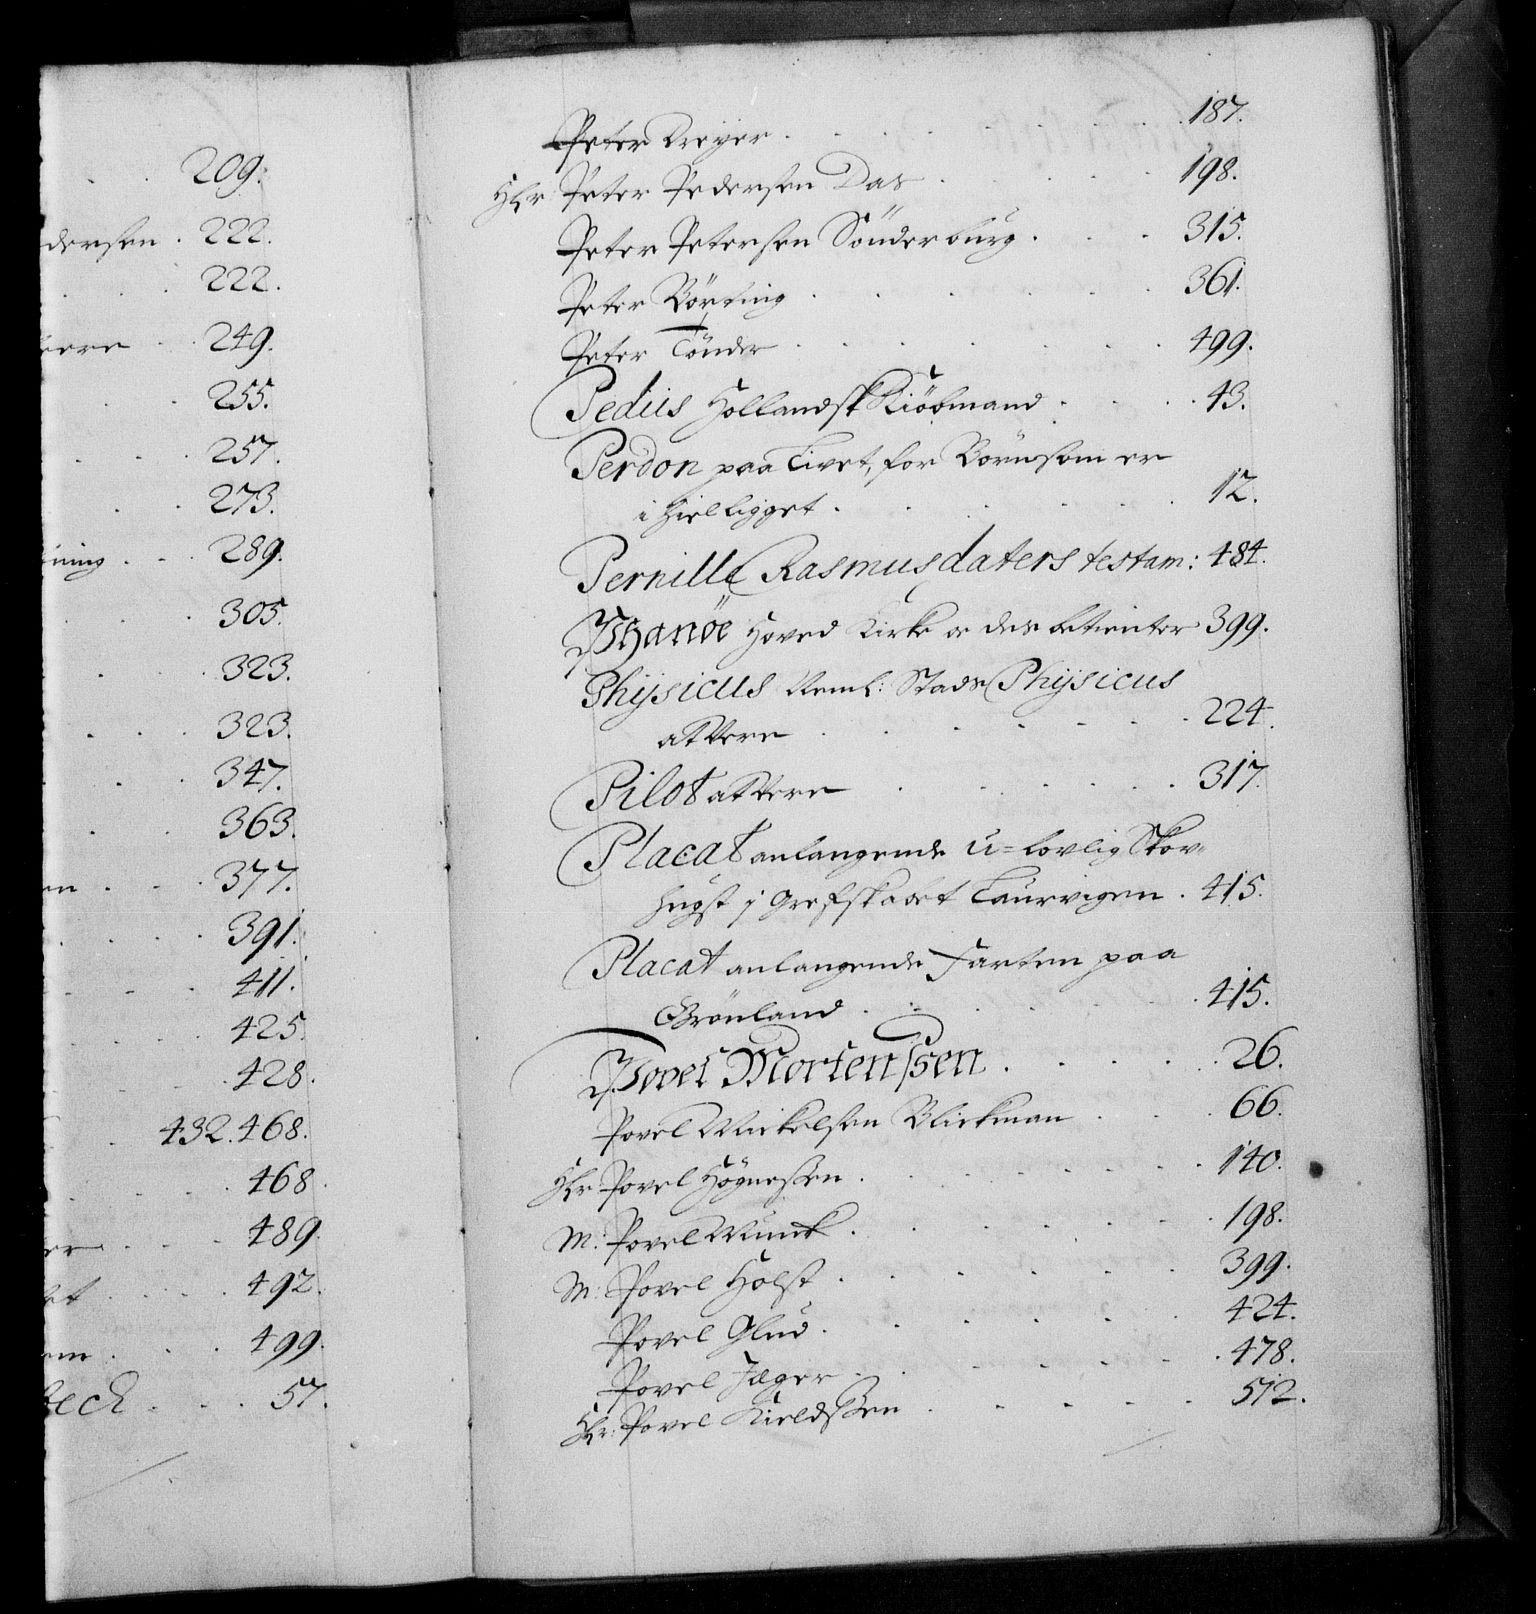 209.
dersen . 222.
222.
249.
255.
257.
273.
289.
305.
323.
323.
347.
363.
377.
391.
411.
425.
428.
432. 468.
468.
489.
492.
499.
57.
Peter Dreyer . . . 187.
Hr Peter Pedersen Das . . . 198.
Peter Petersen Sönderburg . . . 315.
Peter Börting . . . 361.
Peter Tönder . . . 499.
Pedius Hollandsk Kiöbmand . . . 43.
Perdon paa Livet, for Börn som er
i hiel ligget . . . 12.
Pernille Rasmusdaters testam: 484.
Phanöe Hoved Kirke oc des betienter 399.
Physicus Neml: Stads Physicus
at vere . . . 224.
Pilot at vere . . . 317.
Placat anlangende u=lovlig Skov-
hugst j Grefskabet Laurvigen . 415.
Placat anlangende Farten paa
Grönland . . . 415.
Povel Mortenssen . . . 26.
Povel Mickelsen Blickman . . . 66.
Hr Povel Högnessen . . . 140.
M: Povel Munck . . . 198.
M: Povel Holst . . . 399.
Povel Glud . . . 424.
Povel Jæger . . . 478.
Hr: Povel Kieldssen . . . 512.